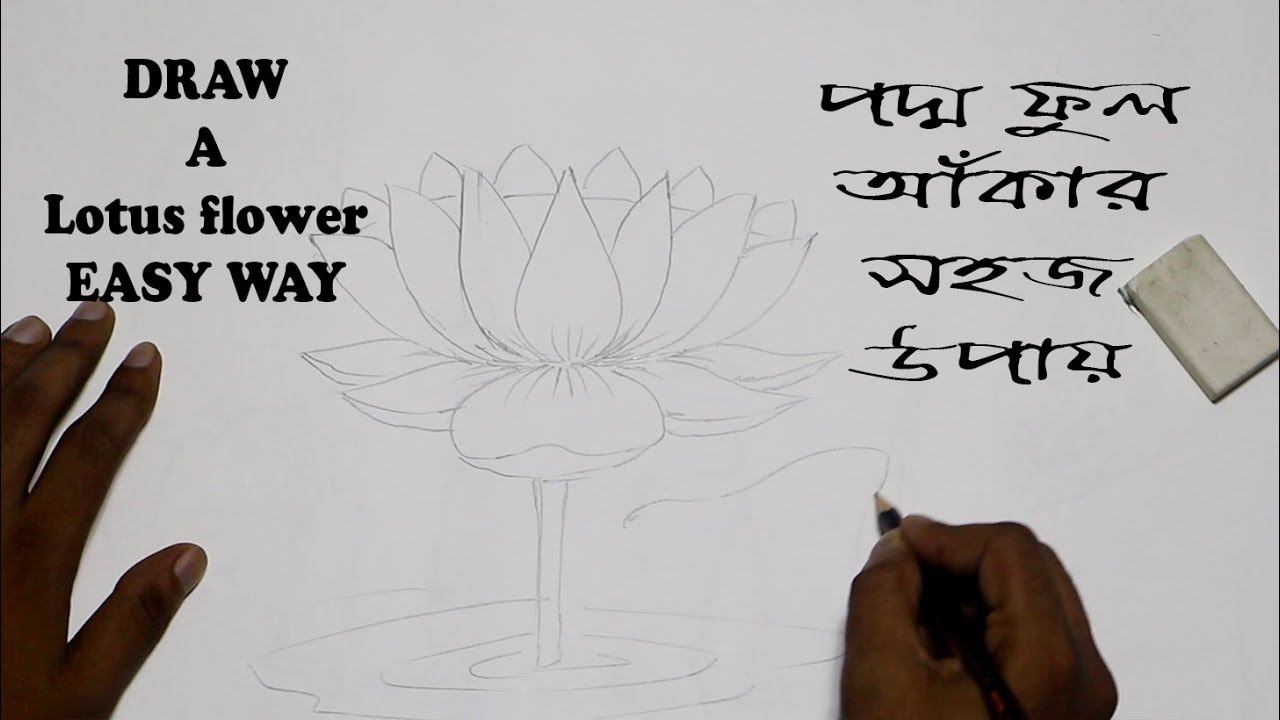 DRAW
A
Lotus flower
EASY WAY
পদ্ম ফুল
আঁকার
সহজ
উপায়